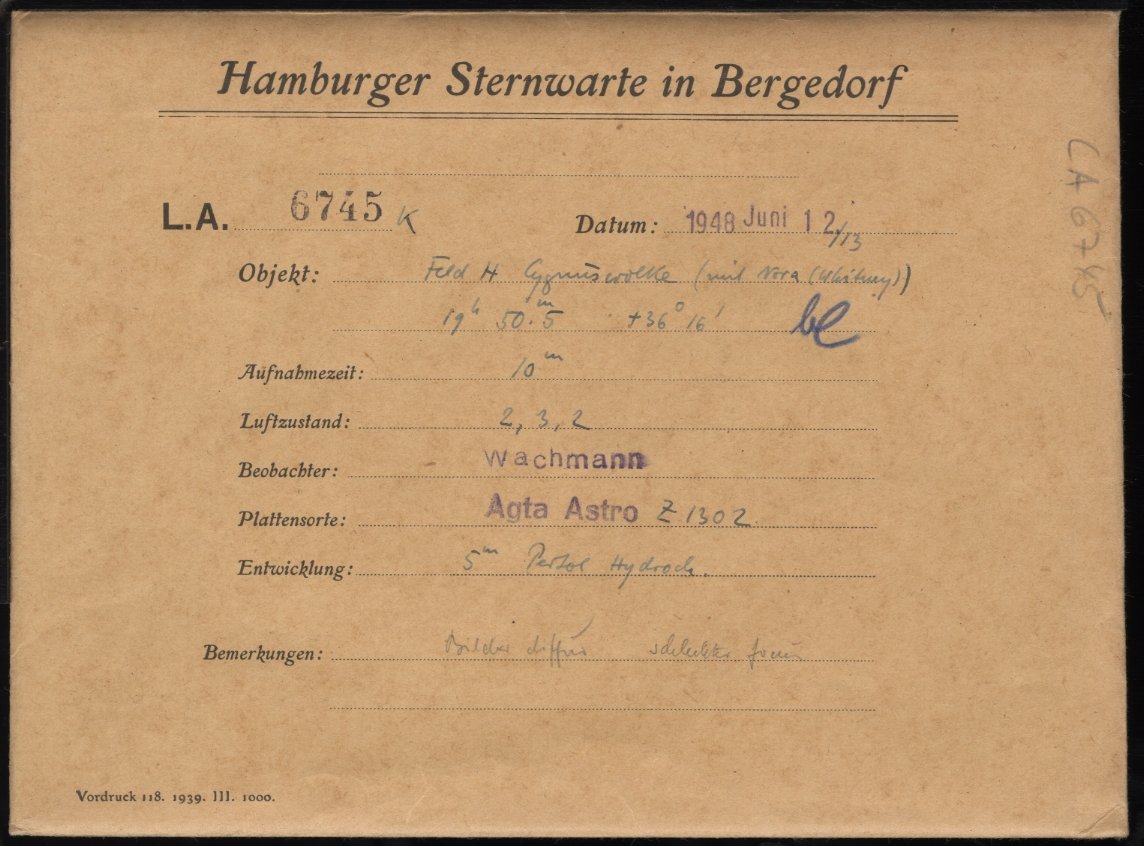 Hamburger Sternwarte in Bergedorf
L.A. 6745 K
Datum: 1948 Juni 12/13
Objekt: Feld H Cygnuswolke (mit Nova (Whitney))
19h 50.m5 +36° 16'
be
Aufnahmezeit: 10m
Luftzustand: 2, 3, 2
Beobachter: Wachmann
Plattensorte: Agfa Astro Z 1302
Entwicklung: 5m Hydroch.
Bemerkungen: Bilder diffus schlechter focus
Vordruck 118. 1939. III. 1000.
LA 6745